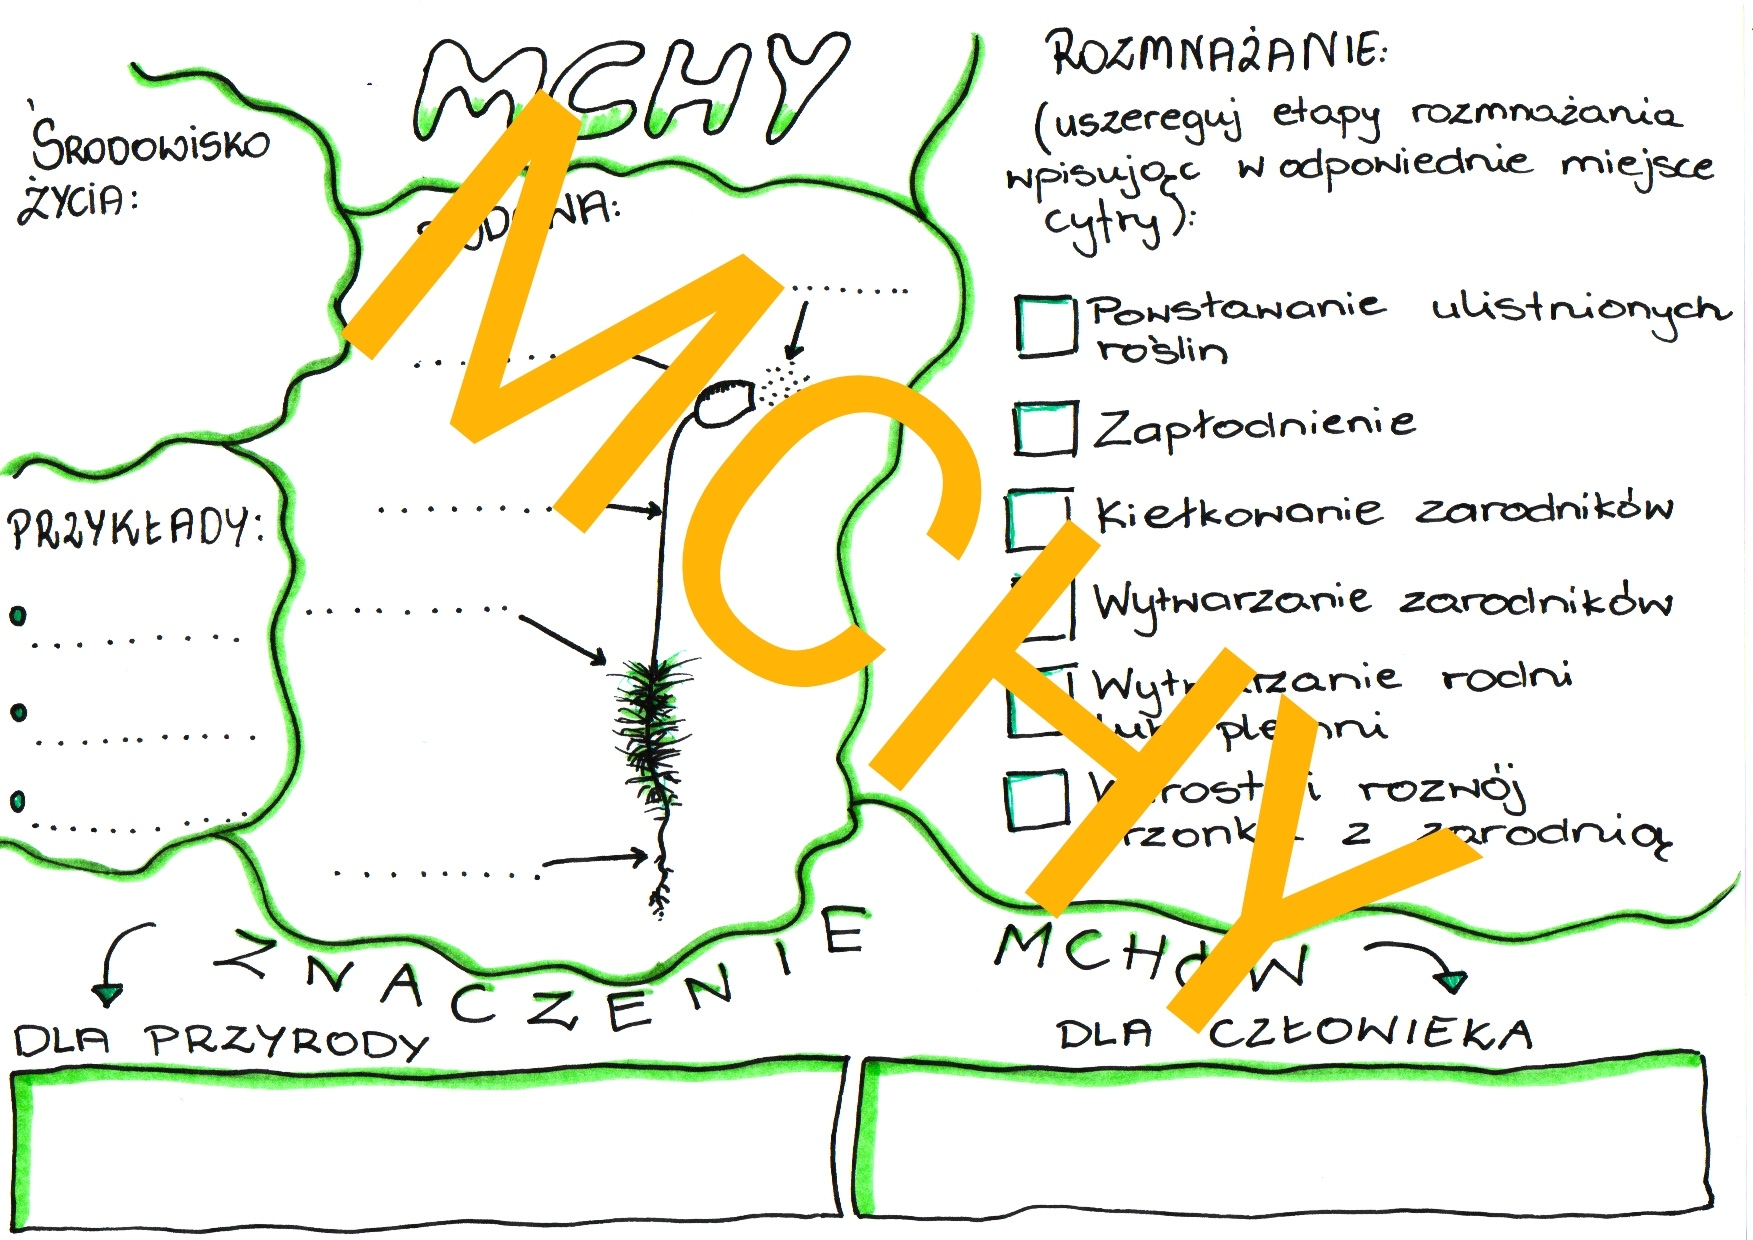 MCHY
ŚRODOWISKO
ŻYCIA:
PRZYKŁADY:
ROZMNAŻANIE:
(uszereguj etapy rozmnażania
wpisując w odpowiednie miejsce
cyfry):
Powstawanie ulistnionych
roślin
Zapłodnienie
Kiełkowanie zarodników
Wytwarzanie zarodników
Wytwarzanie rodni
lub plemni
i rozwój
z zarodnią
ZNACZENIE MCHÓW
DLA PRZYRODY
DLA CZŁOWIEKA
MCHY